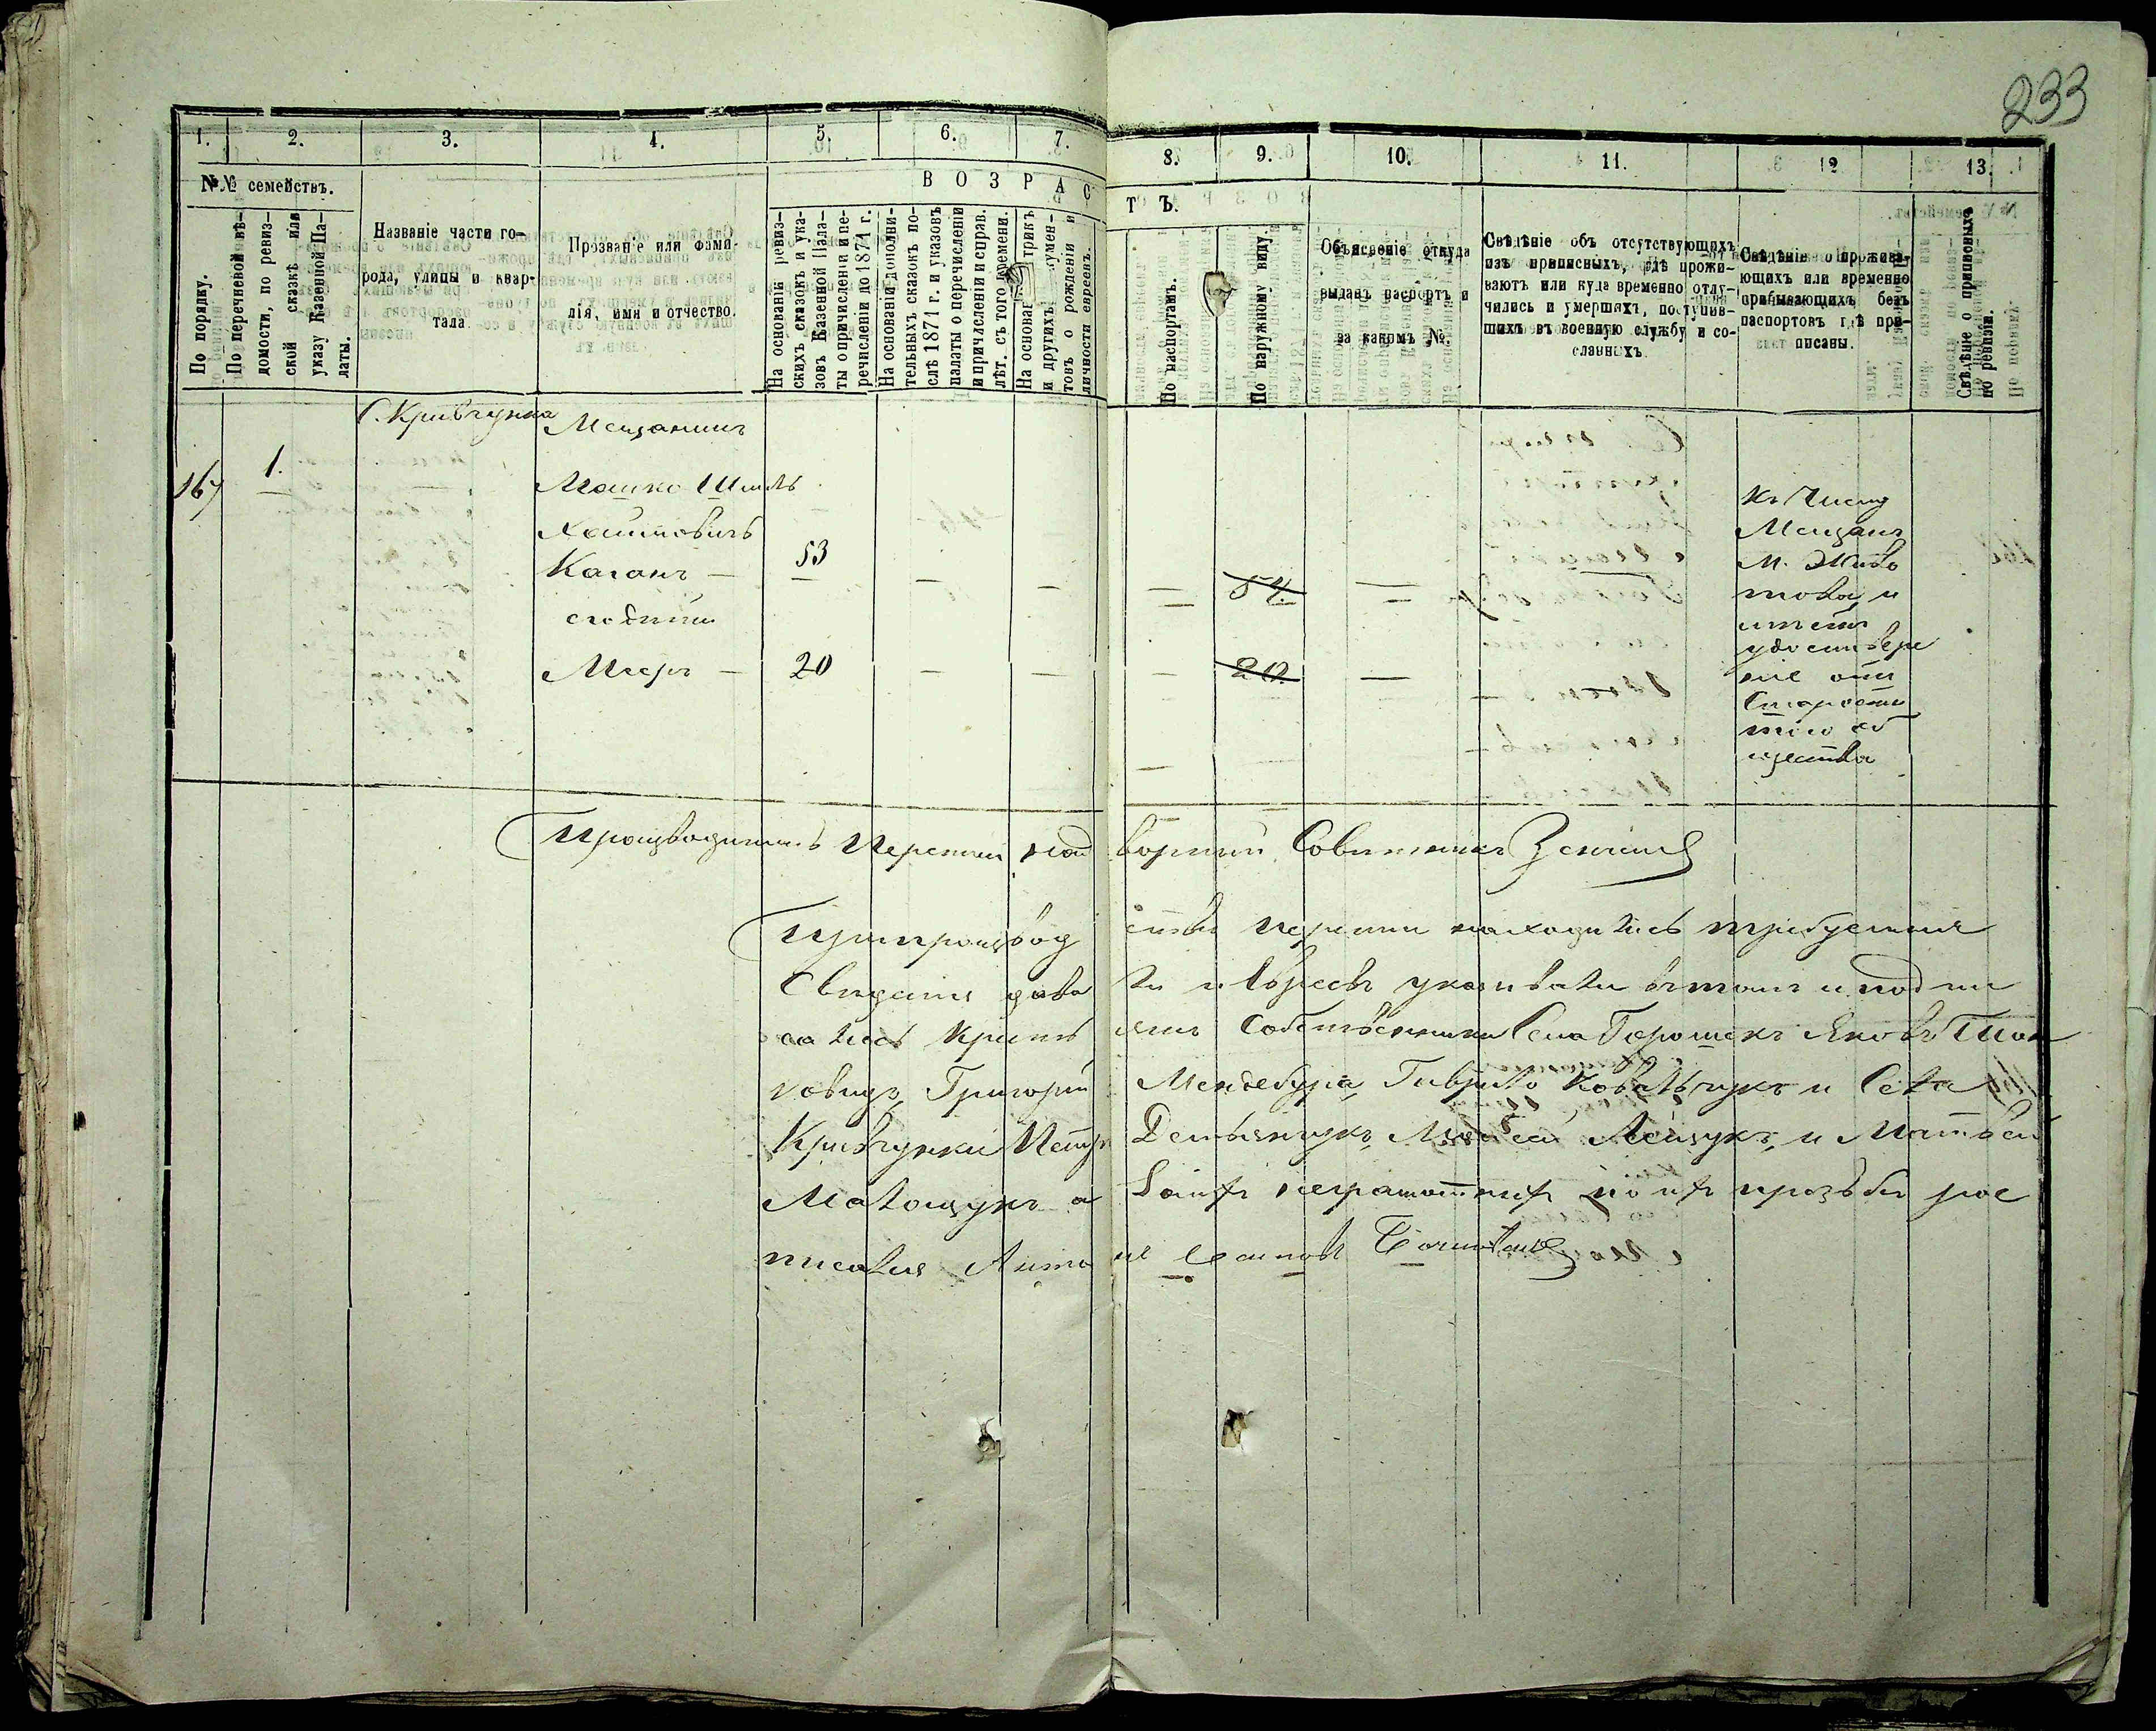 233
1. 2. 3. 4. 5. 6. 7. 8. 9. 10. 11. 12 13.
№№ семействъ.
ВОЗРАСТЪ.
По порядку.
По перечневой вѣ-
домости, по ревиз-
ской сказкѣ или
указу Казенной Па-
латы.
Названіе части го-
рода, улицы и квар-
тала
Прозваніе или фами-
лія, имя и отчество.
На основаніи ревиз-
скихъ сказокъ и ука-
зовъ Казенной Пала-
ты о причисленіи и пе-
речисленіи до 1871 г.
На основаніи дополни-
тельныхъ сказокъ по-
слѣ 1871 г. и указовъ
палаты о перечисленіи
и причисленіи и справ.
лѣт. съ того времени.
На основан трикъ
и другихъ кумен-
товъ о рожденіи и
личности евреевъ.
По паспортамъ.
По наружному виду.
Объясненіе откуда
выданъ паспортъ и
за какимъ №.
Свѣдѣніе объ отсутствующихъ
изъ приписныхъ, гдѣ прожи-
ваютъ или куда временно отлу-
чились и умершихъ, поступив-
шихъ въ военную службу и со-
сланныхъ.
Свѣдѣніе о прожива-
ющихъ или временно
прибывающихъ безъ
паспортовъ гдѣ при-
писаны.
Свѣдѣніе о приписныхъ
по ревизіи.
С. Кривчунка Мещанинъ
167 1. Мошко Шмуль
Хаимовичъ
Каганъ — 53 — — — 54. —
его сынъ
Мееръ — 20 — — — 20. —
Къ числу
Мещанъ
М. Живо
това, и
имѣетъ
удостовере
ніе отъ
Старосты
того об
щества
Производилъ Перепись надворный Совѣтникъ
При производствѣ переписи находились требуемыя
Сведенія давали и Евреевъ указывали въ томъ и подпи
сались Крестьяне Собственники Села Горошекъ Яковъ
Григорій Мендебура, Гаврило Ковальчукъ и Села
Кривчунки Петръ Демьянчукъ, Лещукъ, и Матвей
Малощукъ а за ихъ неграмотныхъ по ихъ прозьбы рос
писался